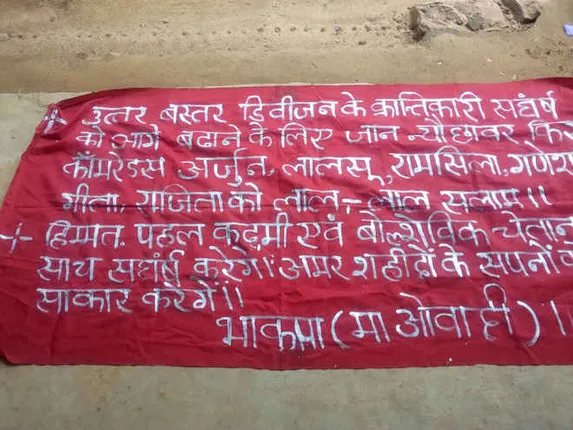 उत्तर बस्तर डिवीजन के क्रान्तिकारी संघर्ष
को आगे बढाने के लिए जान न्यौछावर किये
कॉमरेडस अर्जुन, लालसू, रामसिला, गणेश
गीता, राजिता को लाल-लाल सलाम।।
हिम्मत, पहल कदमी एवं बोल्शेविक चेतना
साथ संघर्ष करेगें।। अमर शहीदों के सपनों
साकार करेगें।।
भाकपा (माओवाही)।।